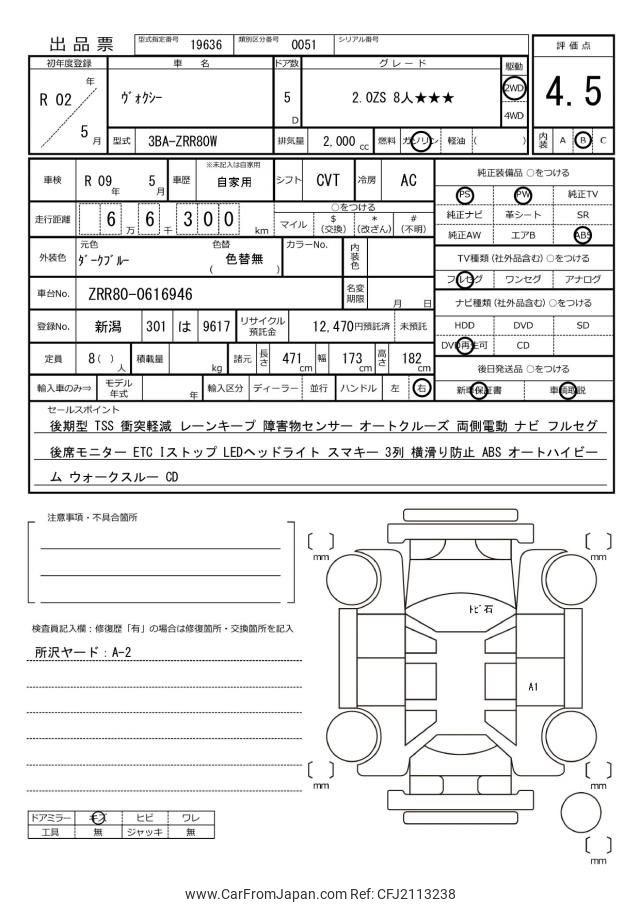 出品票 型式指定番号 19636 類別区分番号 0051 シリアル番号
評価点
4.5
内装 A B C
初年度登録 車名 ドア数 グレード 駆動
R 02 年 5 月
ヴォクシー 5 D 2.0ZS 8人★★★ 2WD 4WD
型式 3BA-ZRR80W 排気量 2,000 cc 燃料 ガソリン 軽油 ( )
車検 R 09 年 5 月 車歴 ※未記入は自家用 自家用 シフト CVT 冷房 AC
走行距離 6 万 6 千 3 0 0 km
○をつける
マイル $ (交換) * (改ざん) # (不明)
外装色 元色 ダークブルー 色替 ( 色替無 ) カラーNo. 内装色
車台No. ZRR80-0616946 名変期限 月 日
登録No. 新潟 301 は 9617 リサイクル預託金 12,470円預託済 未預託
定員 8( ) 人 積載量 kg 諸元 長さ 471 cm 幅 173 cm 高さ 182 cm
輸入車のみ⇒ モデル年式 年 輸入区分 ディーラー 並行 ハンドル 左 右
純正装備品 ○をつける
PS PW 純正TV
純正ナビ 革シート SR
純正AW エアB ABS
TV種類 (社外品含む) ○をつける
フルセグ ワンセグ アナログ
ナビ種類 (社外品含む) ○をつける
HDD DVD SD
DVD再生可 CD
後日発送品 ○をつける
新車保証書 車輌取説
セールスポイント
後期型 TSS 衝突軽減 レーンキープ 障害物センサー オートクルーズ 両側電動 ナビ フルセグ
後席モニター ETC Iストップ LEDヘッドライト スマキー 3列 横滑り防止 ABS オートハイビー
ム ウォークスルー CD
注意事項・不具合箇所
検査員記入欄：修復歴「有」の場合は修復箇所・交換箇所を記入
所沢ヤード：A-2
ドアミラー キズ ヒビ ワレ
工具 無 ジャッキ 無
mm mm
トビ石
A1
mm mm
mm
www.CarFromJapan.com Ref: CFJ2113238